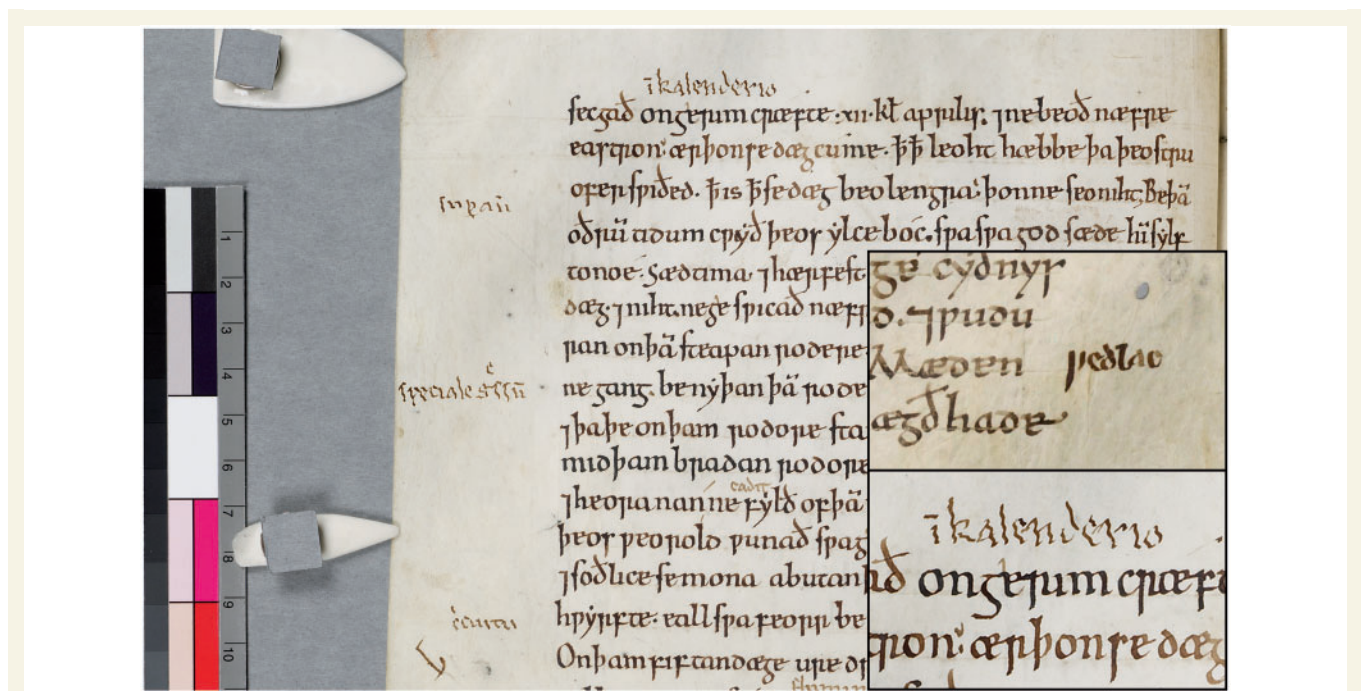 ī kalenderio
secgað on gerimcræfte ·xii· kł aprilis. ⁊ ne beoð næfre
eastron ær þon se dæg cume. ꝥ ꝥ leoht hæbbe þa þeostru
oferswiðeð. ꝥ is ꝥ se dæg beo lengra þonne seo niht; Be þā
oðrū tidum cƿyð þeos ylce bóc. sƿa sƿa god sæde hī sylf
to noe. Sædtima ⁊ hærfest
dæg. ⁊ niht. ne gesƿicað næfr
ran on þā steapan rodere
speciale
ne gang. benyþan þā rode
⁊ þa þe on þam rodore sta
mid þam bradan rodore
cadit
⁊ heora nan ne fylð of þā
þeos ƿeorold ƿunað sƿa g
⁊ soðlice se mona abutan
hƿyrfte. eall sƿa feorr be
On þam fiftan dæge ure dr
1
2
3
4
5
6
7
8
9
10
ge cyðnys
d. ⁊ ƿudu
Mæden
ægðhade
ī kalenderio
að on gerimcræft
tron ær þon se dæg